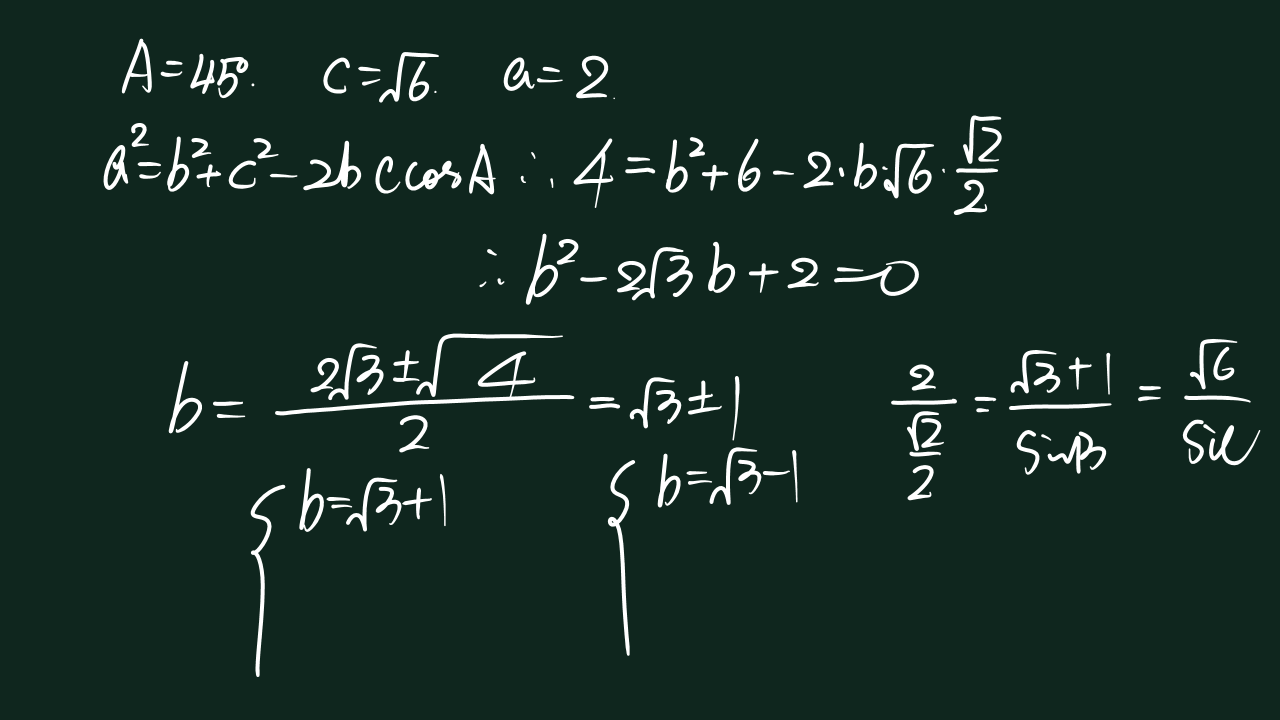 A=45°. c=√6. a=2.
a²=b²+c²-2bccosA ∴ 4=b²+6-2·b·√6·√2/2
∴ b²-2√3b+2=0
b=(2√3±√4)/2=√3±1 2/(√2/2)=(√3+1)/sinB=√6/sinC
{b=√3+1 {b=√3-1